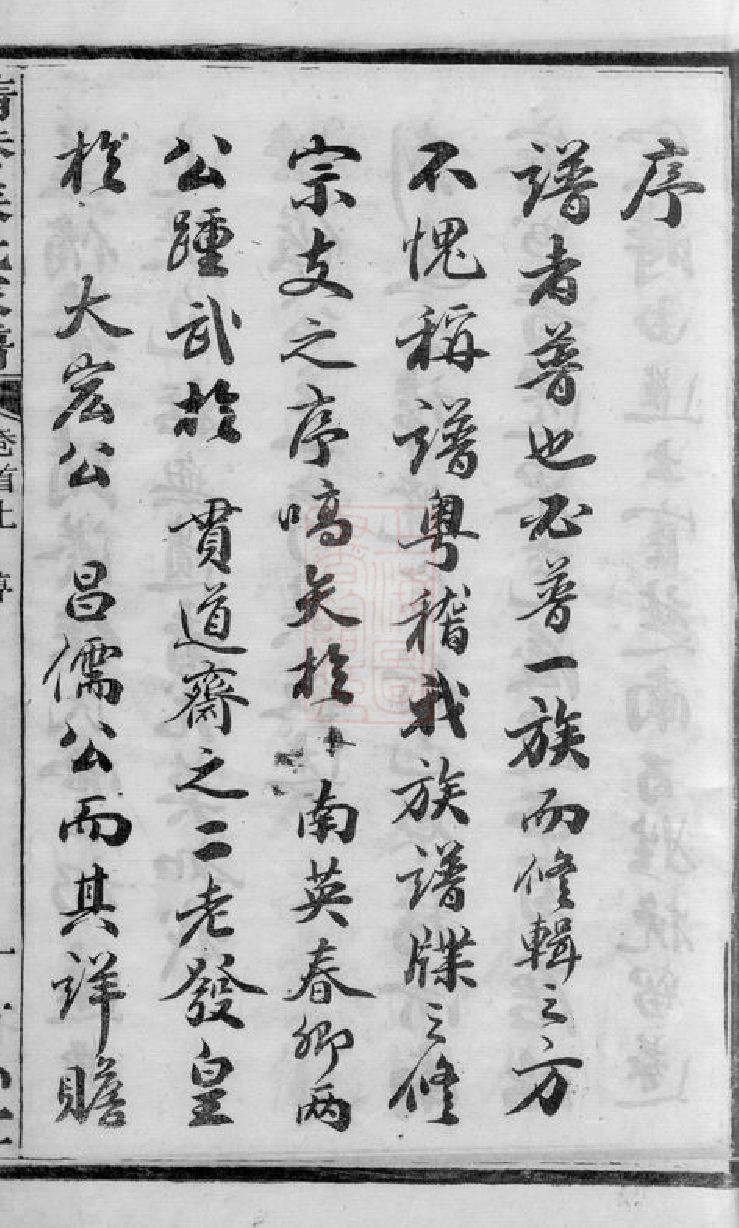 序
譜者普也必普一族而修輯之方
不愧稱譜粵稽我族譜牒之修
宗支之序嚆矢於 南英春卿兩
公踵武於 貫道齋之二老發皇
於 大宏公 昌儒公而其詳贍
卷首上